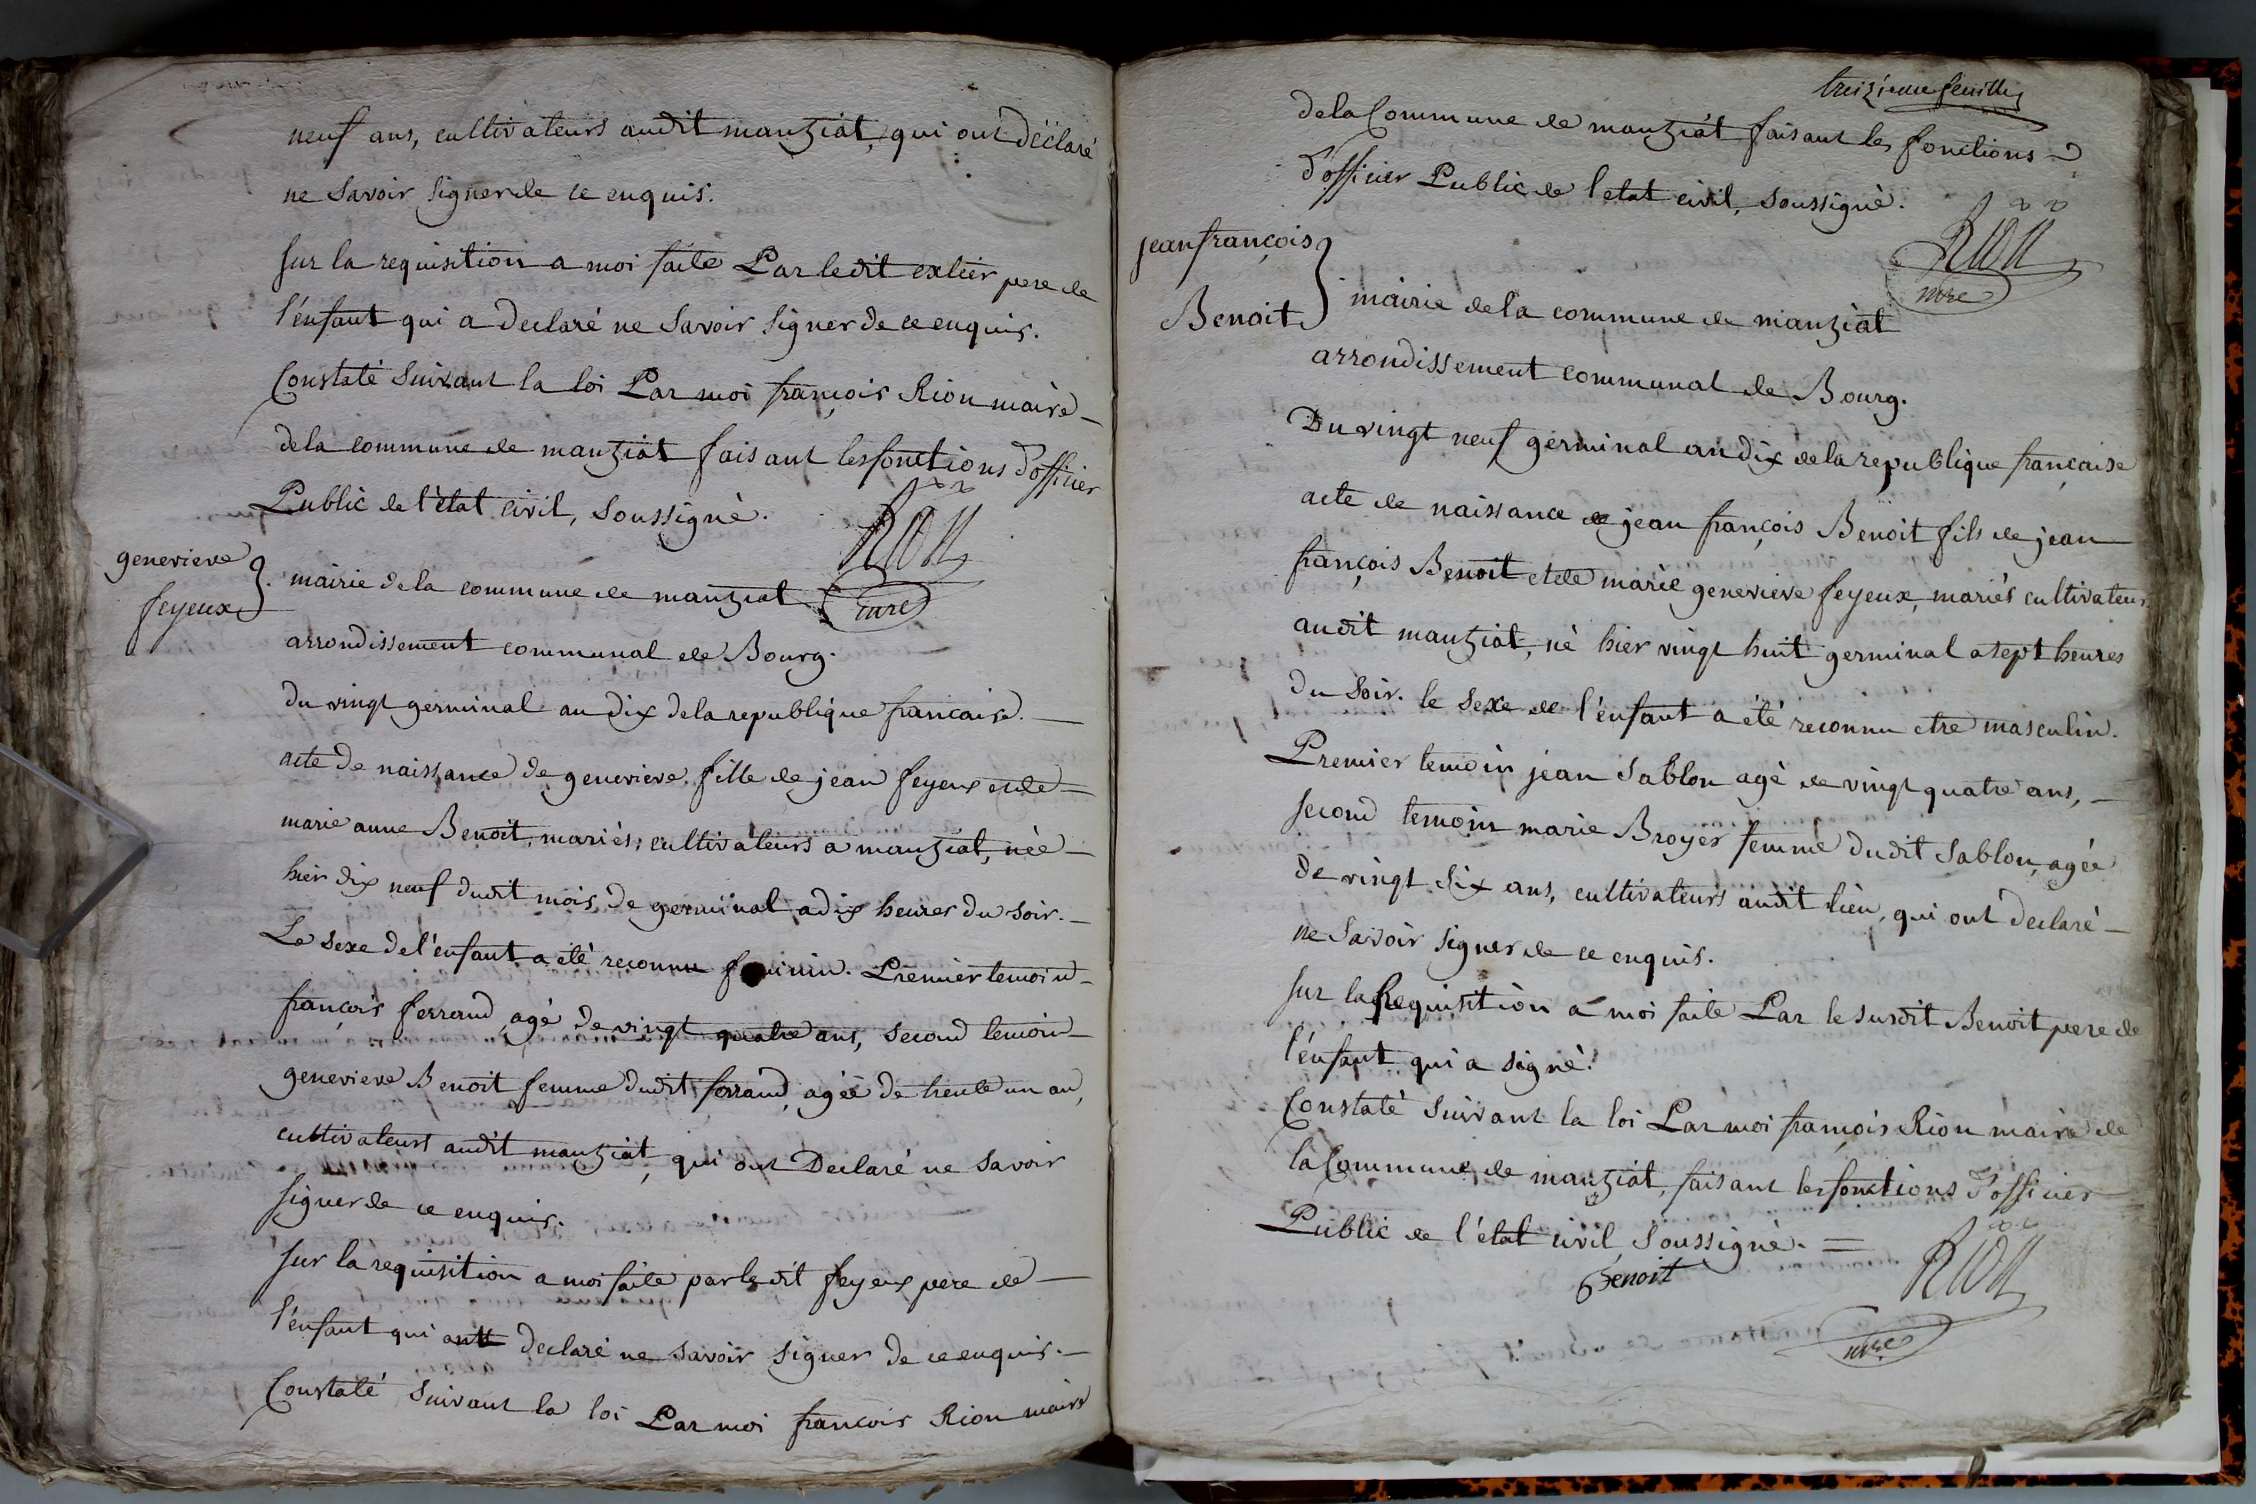 neuf ans, cultivateurs audit manziat, qui ont déclaré
ne savoir signer de ce enquis.
sur la requisition a moi faite Par ledit extier pere de
l'enfant qui a declaré ne savoir signer de ce enquis.
Constaté suivant la loi Par moi françois Rion maire
de la commune de manziat faisant les fonctions d'officier
Public de l'état civil, soussigné.
Rion
mre
genevieve
feyeux
mairie de la commune de manziat
arrondissement communal de Bourg.
du vingt germinal an dix de la republique francaise.
acte de naissance de genevieve fille de jean feyeux et de
marie anne Benoit, mariés, cultivateurs a manziat, née
hier dix neuf dudit mois de germinal a dix heures du soir.
Le sexe de l'enfant a été reconnu feminin. Premier temoin
françois ferrand, agé de vingt quatre ans, second temoin
genevieve Benoit femme dudit ferrand, agée de trente un an,
cultivateurs audit manziat, qui ont Declaré ne savoir
signer de ce enquis.
sur la requisition a moi faite par ledit feyeux pere de
l'enfant qui a declaré ne savoir signer de ce enquis.
Constaté suivant la loi Par moi francois Rion maire
treizieme feuille
de la Commune de manziat faisant les fonctions
d'officier Public de l'etat civil, soussigné.
Rion
mre
jean françois
Benoit
mairie de la commune de manziat
arrondissement communal de Bourg.
Du vingt neuf germinal an dix de la republique française
acte de naissance de jean françois Benoit fils de jean
françois Benoit et de marie genevieve feyeux, mariés cultivateurs
audit manziat, né hier vingt huit germinal a sept heures
du soir. le sexe de l'enfant a été reconnu etre masculin.
Premier temoin jean Sablon agé de vingt quatre ans,
second temoin marie Broyer femme dudit Sablon, agée
de vingt six ans, cultivateurs audit lieu, qui ont declaré
ne savoir signer de ce enquis.
sur la Requisition a moi faite Par le susdit Benoit pere de
l'enfant qui a signé.
Constaté suivant la loi Par moi françois Rion maire de
la Commune de manziat, faisant les fonctions d'officier
Public de l'état civil soussigné. =
Benoit
Rion
mre